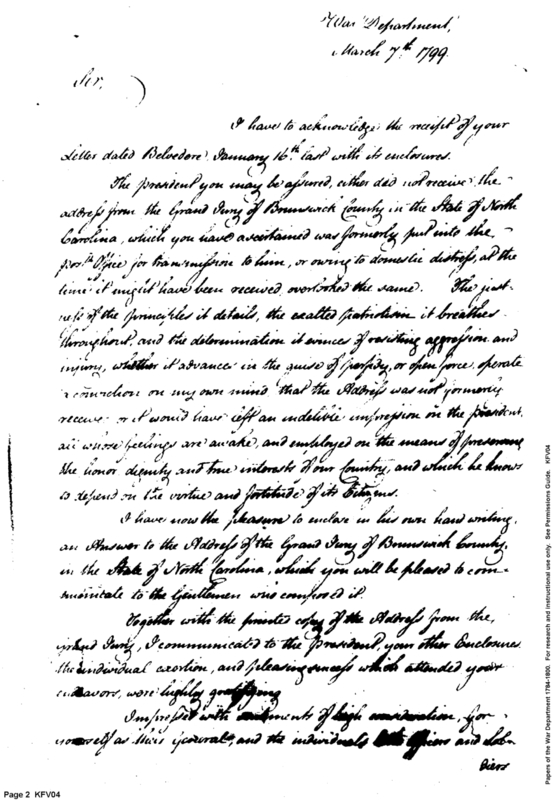 War Department,
March 7th 1799.
Sir,
I have to acknowledge the receipt of your
Letter dated Belvedere January 16th last with its enclosures.
The president you may be assured, either did not receive the
address from the Grand Jury of Brunswick County in the State of North
Carolina, which you have ascertained was formerly put into the
post Office for transmission to him, or owing to domestic distress, at the
time it might have been received, overlooked the same. The just-
ness of the principles it details, the exalted patriotism it breathes
throughout, and the determination it evinces of resisting aggression and
injury, whether it advances in the guise of perfidy, or open force, operate
a conviction on my own mind that the Address was not formerly
receive or it would have left an indelible impression on the president,
all whose feelings are awake, and employed on the means of preserving
the honor dignity and true interests of our Country, and which he knows
to depend on the virtue and fortitude of its Citizens.
I have now the pleasure to enclose in his own hand writing,
an Answer to the Address of the Grand Jury of Brunswick County,
in the State of North Carolina, which you will be pleased to com-
municate to the Gentlemen who composed it.
Together with the printed copy of the Address from the
grand Jury, I communicated to the President, your other Enclosures
the individual exertion, and pleasing success which attended your
endeavors, were highly gratifying
Impressed with sentiments of high consideration, for
yourself as their General, and the individuals Officers and Sol-
diers
Page 2 KFV04
Papers of the War Department 1784-1800. For research and instructional use only. See Permissions Guide. KFV04